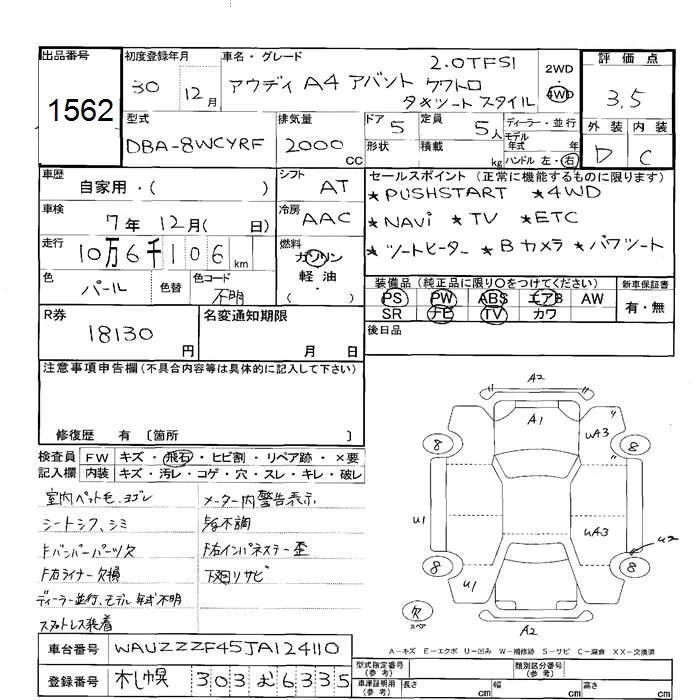 出品番号
1562
初度登録年月
30 12月
車名・グレード
アウディ A4 アバント 2.0TFSI クワトロ
タキシートスタイル
2WD
4WD
評価点
3.5
外装 内装
D C
型式
DBA-8WCYRF
排気量
2000
cc
ドア 5
定員 5人
形状
積載 kg
ディーラー・並行
モデル
年式 年
ハンドル 左・右
車歴
自家用・( )
シフト
AT
車検
7年 12月( 日)
冷房
AAC
走行
10万6千106 km
燃料
ガソリン
軽油
・
( )
色
パール
色替
色コード
不明
セールスポイント (正常に機能するものに限ります)
★PUSHSTART ★4WD
★NAVi ★TV ★ETC
★シートヒーター ★Bカメラ ★パワシート
装備品 (純正品に限り○をつけてください)
PS PW ABS エアB AW
SR ナビ TV カワ
新車保証書
有・無
後日品
R券
18130
円
名変通知期限
月 日
注意事項申告欄(不具合内容等は具体的に記入して下さい)
修復歴 有 〔箇所 〕
検査員
記入欄
FW キズ・飛石・ヒビ割・リペア跡・×要
内装 キズ・汚レ・コゲ・穴・スレ・キレ・破レ
室内ペット毛、ヨゴレ
シートシワ、シミ
Fバンパーパーツ欠
F右ライナー欠損
ディーラー並行、モデル年式不明
スタットレス装着
メーター内警告表示
F右インパネステー歪
下廻リサビ
A2
A1
UA3
8
8
U1
UA3
U2
8
8
U1
欠
スペア
A2
A-キズ E-エクボ U-凹み W-補修跡 S-サビ C-腐食 XX-交換済
車台番号
WAUZZZF45JA124110
登録番号
札幌 303 む 6335
型式指定番号
(参考)
類別区分番号
(参考)
車庫証明用
(参考)
長さ cm
幅 cm
高さ cm